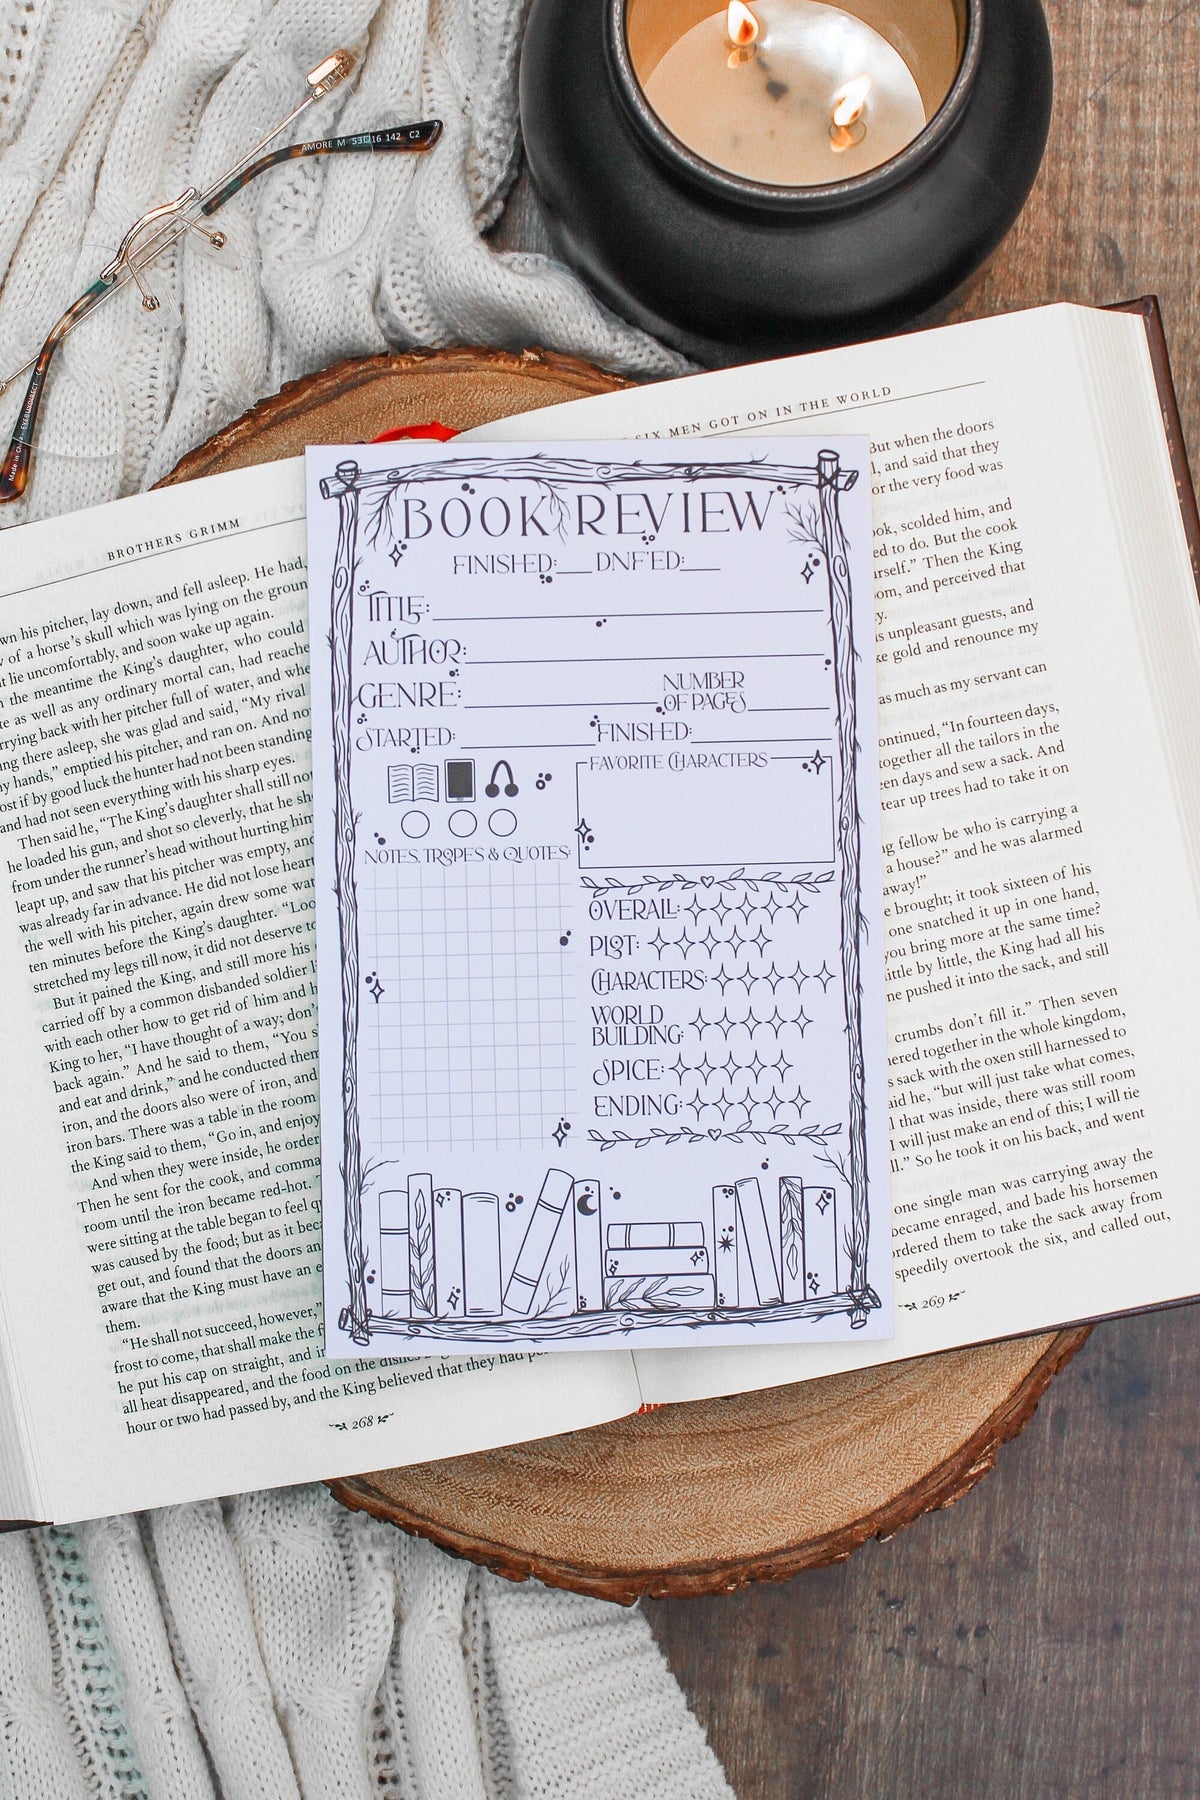 AMORE M 53 16 142 C2
Made in China EYEBUYDIRECT CE
BROTHERS GRIMM
wn his pitcher, lay down, and fell asleep. He had,
of a horse's skull which was lying on the groun
lie uncomfortably, and soon wake up again.
the meantime the King's daughter, who could
as well as any ordinary mortal can, had reache
rrying back with her pitcher full of water, and whe
ing there asleep, she was glad and said, "My rival
hands," emptied his pitcher, and ran on. And no
ost if by good luck the hunter had not been standing
and had not seen everything with his sharp eyes.
Then said he, "The King's daughter shall still not
he loaded his gun, and shot so cleverly, that he sh
from under the runner's head without hurting him
leapt up, and saw that his pitcher was empty, and
was already far in advance. He did not lose heart
the well with his pitcher, again drew some wat
ten minutes before the King's daughter. "Loo
stretched my legs till now, it did not deserve to
But it pained the King, and still more his
carried off by a common disbanded soldier l
with each other how to get rid of him and h
King to her, "I have thought of a way; don'
back again." And he said to them, "You s
and eat and drink," and he conducted them
iron, and the doors also were of iron, and
iron bars. There was a table in the room
the King said to them, "Go in, and enjoy
And when they were inside, he order
Then he sent for the cook, and comma
room until the iron became red-hot.
were sitting at the table began to feel q
was caused by the food; but as it beca
get out, and found that the doors an
aware that the King must have an e
them.
"He shall not succeed, however,"
frost to come, that shall make the f
he put his cap on straight, and i
all heat disappeared, and the food on the dishes
hour or two had passed by, and the King believed that they had pe
268
BOOK REVIEW
FINISHED:___ DNF'ED:___
TITLE:
AUTHOR:
GENRE: NUMBER
OF PAGES
STARTED: FINISHED:
FAVORITE CHARACTERS
NOTES, TROPES & QUOTES:
OVERALL:
PLOT:
CHARACTERS:
WORLD
BUILDING:
SPICE:
ENDING:
SIX MEN GOT ON IN THE WORLD
But when the doors
l, and said that they
or the very food was
ook, scolded him, and
ed to do. But the cook
urself." Then the King
om, and perceived that
y.
is unpleasant guests, and
ke gold and renounce my
as much as my servant can
ontinued, "In fourteen days,
together all the tailors in the
en days and sew a sack. And
tear up trees had to take it on
g fellow be who is carrying a
a house?" and he was alarmed
away!"
e brought; it took sixteen of his
one snatched it up in one hand,
you bring more at the same time?
ittle by little, the King had all his
ne pushed it into the sack, and still
crumbs don't fill it." Then seven
hered together in the whole kingdom,
s sack with the oxen still harnessed to
aid he, "but will just take what comes,
l that was inside, there was still room
I will just make an end of this; I will tie
ll." So he took it on his back, and went
one single man was carrying away the
became enraged, and bade his horsemen
rdered them to take the sack away from
speedily overtook the six, and called out,
269